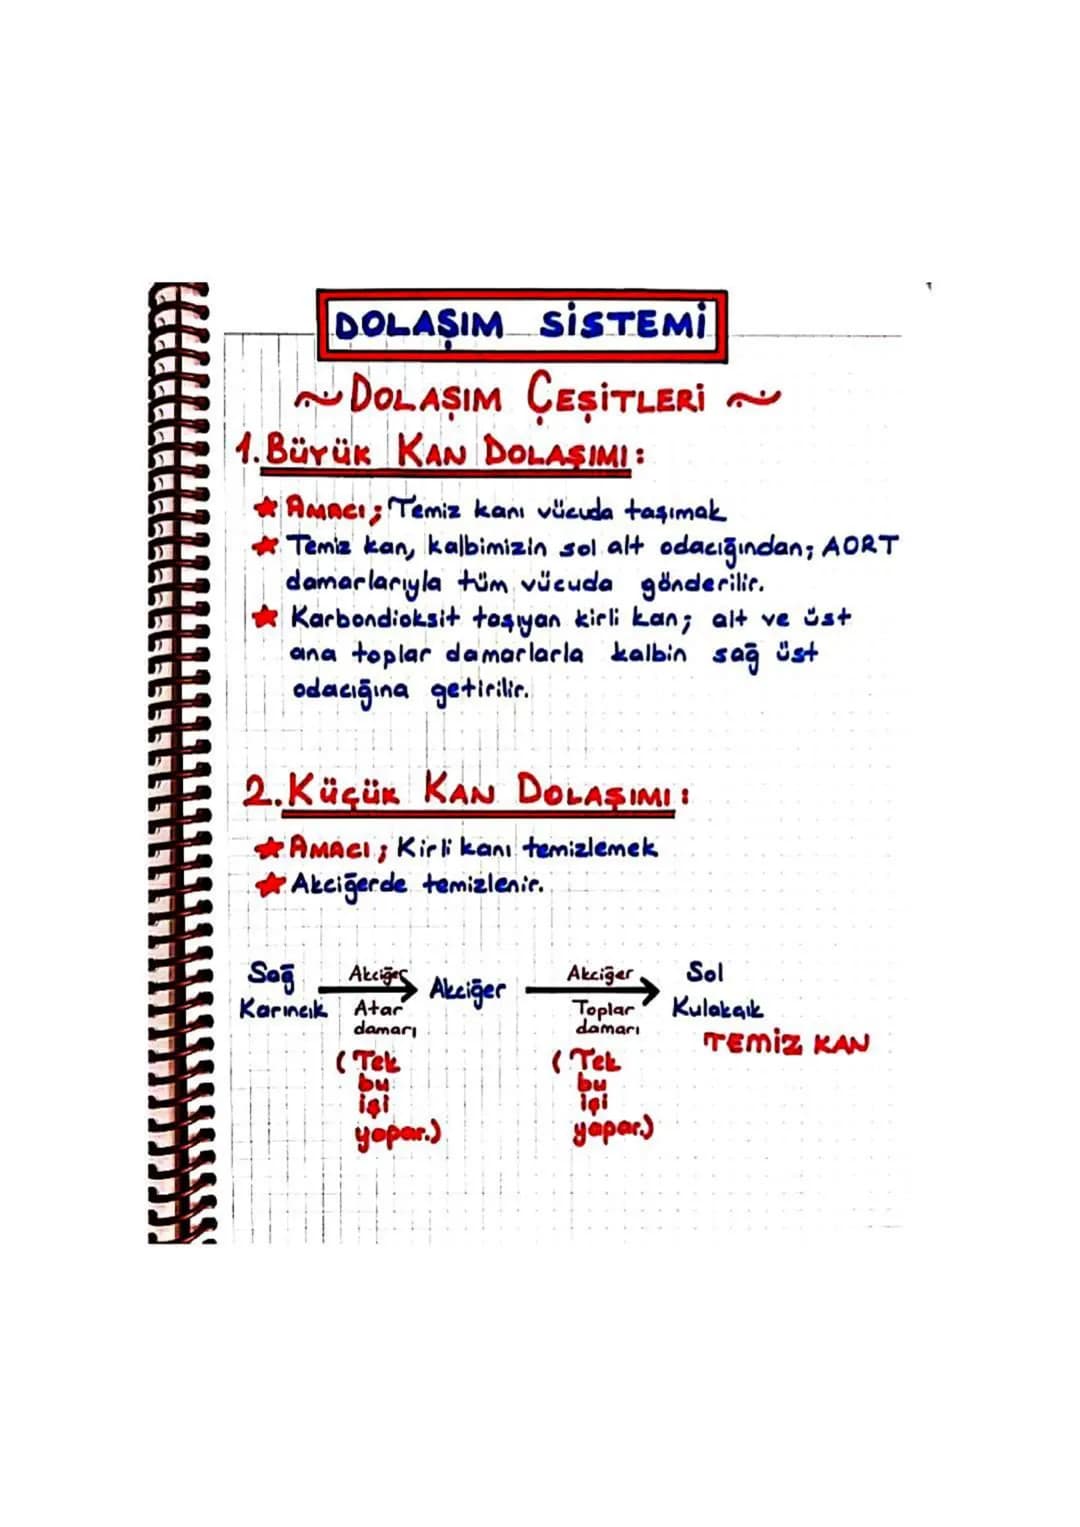 DOLAŞIM SİSTEMİ
~ DOLAŞIM ÇEŞİTLERİ ~
1. BÜYÜK KAN DOLAŞIMI:
★ AMACI; Temiz kanı vücuda taşımak
★ Temiz kan, kalbimizin sol alt odacığından; AORT
damarlarıyla tüm vücuda gönderilir.
★ Karbondioksit taşıyan kirli kan; alt ve üst
ana toplar damarlarla kalbin sağ üst
odacığına getirilir.
2. KÜÇÜK KAN DOLAŞIMI:
★ AMACI; Kirli kanı temizlemek
★ Akciğerde temizlenir.
Sağ Karıncık
Akciğer Atar damarı
(Tek bu işi yapar.)
Akciğer
Akciğer Toplar damarı
(Tek bu işi yapar.)
Sol Kulakçık
TEMİZ KAN